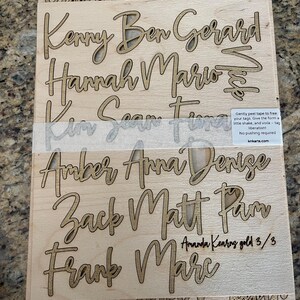 Kenny Ben Gerard
Nick
Hannah Mario
Kim Sean Fiona
Gently peel tape to free
your tags. Give the form a
little shake, and voila - tag
liberation!
No pushing required
Amber Anna Denise
Zack Matt Pam
Amanda Kearns gold 3/3
Frank Marc